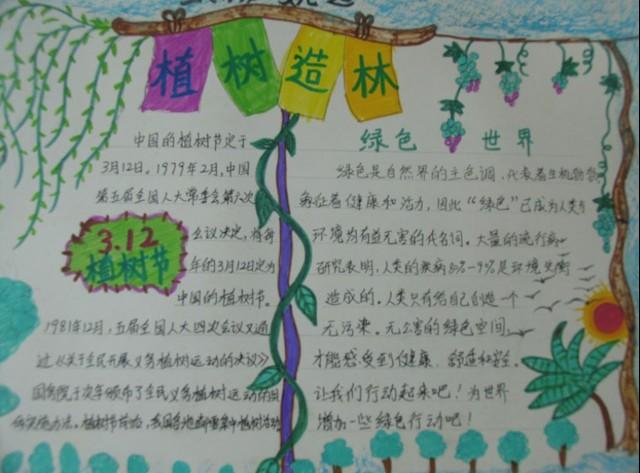 植树造林
中国的植树节定于
3月12日。1979年2月,中国
第五届全国人大常委会第六次
会议决定,将每
年的3月12日定为
中国的植树节。
3.12
植树节
1981年12月,五届全国人大四次会议又通
过《关于全民开展义务植树运动的决议》
国务院于次年颁布了全民义务植树运动的
实施办法。植树节前后,我国各地都要集中植树活动
绿色 世界
绿色是自然界的主色调,代表着生机勃勃
象征着健康和活力,因此“绿色”已成为人类与
环境为有益无害的代名词。大量的流行病
研究表明,人类的疾病
是环境失衡
造成的。人类只有给自己创造一个
无污染。无公害的绿色空间,
才能感受到健康、舒适和安全。
让我们行动起来吧!为世界
增加一些绿色行动吧!